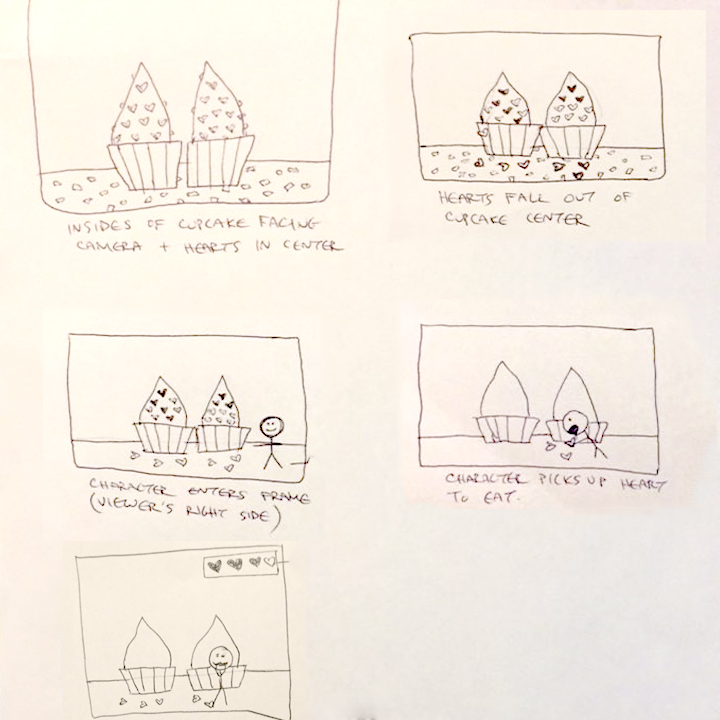 INSIDES OF CUPCAKE FACING
CAMERA + HEARTS IN CENTER
HEARTS FALL OUT OF
CUPCAKE CENTER
CHARACTER ENTERS FRAME
(VIEWER'S RIGHT SIDE)
CHARACTER PICKS UP HEART
TO EAT.